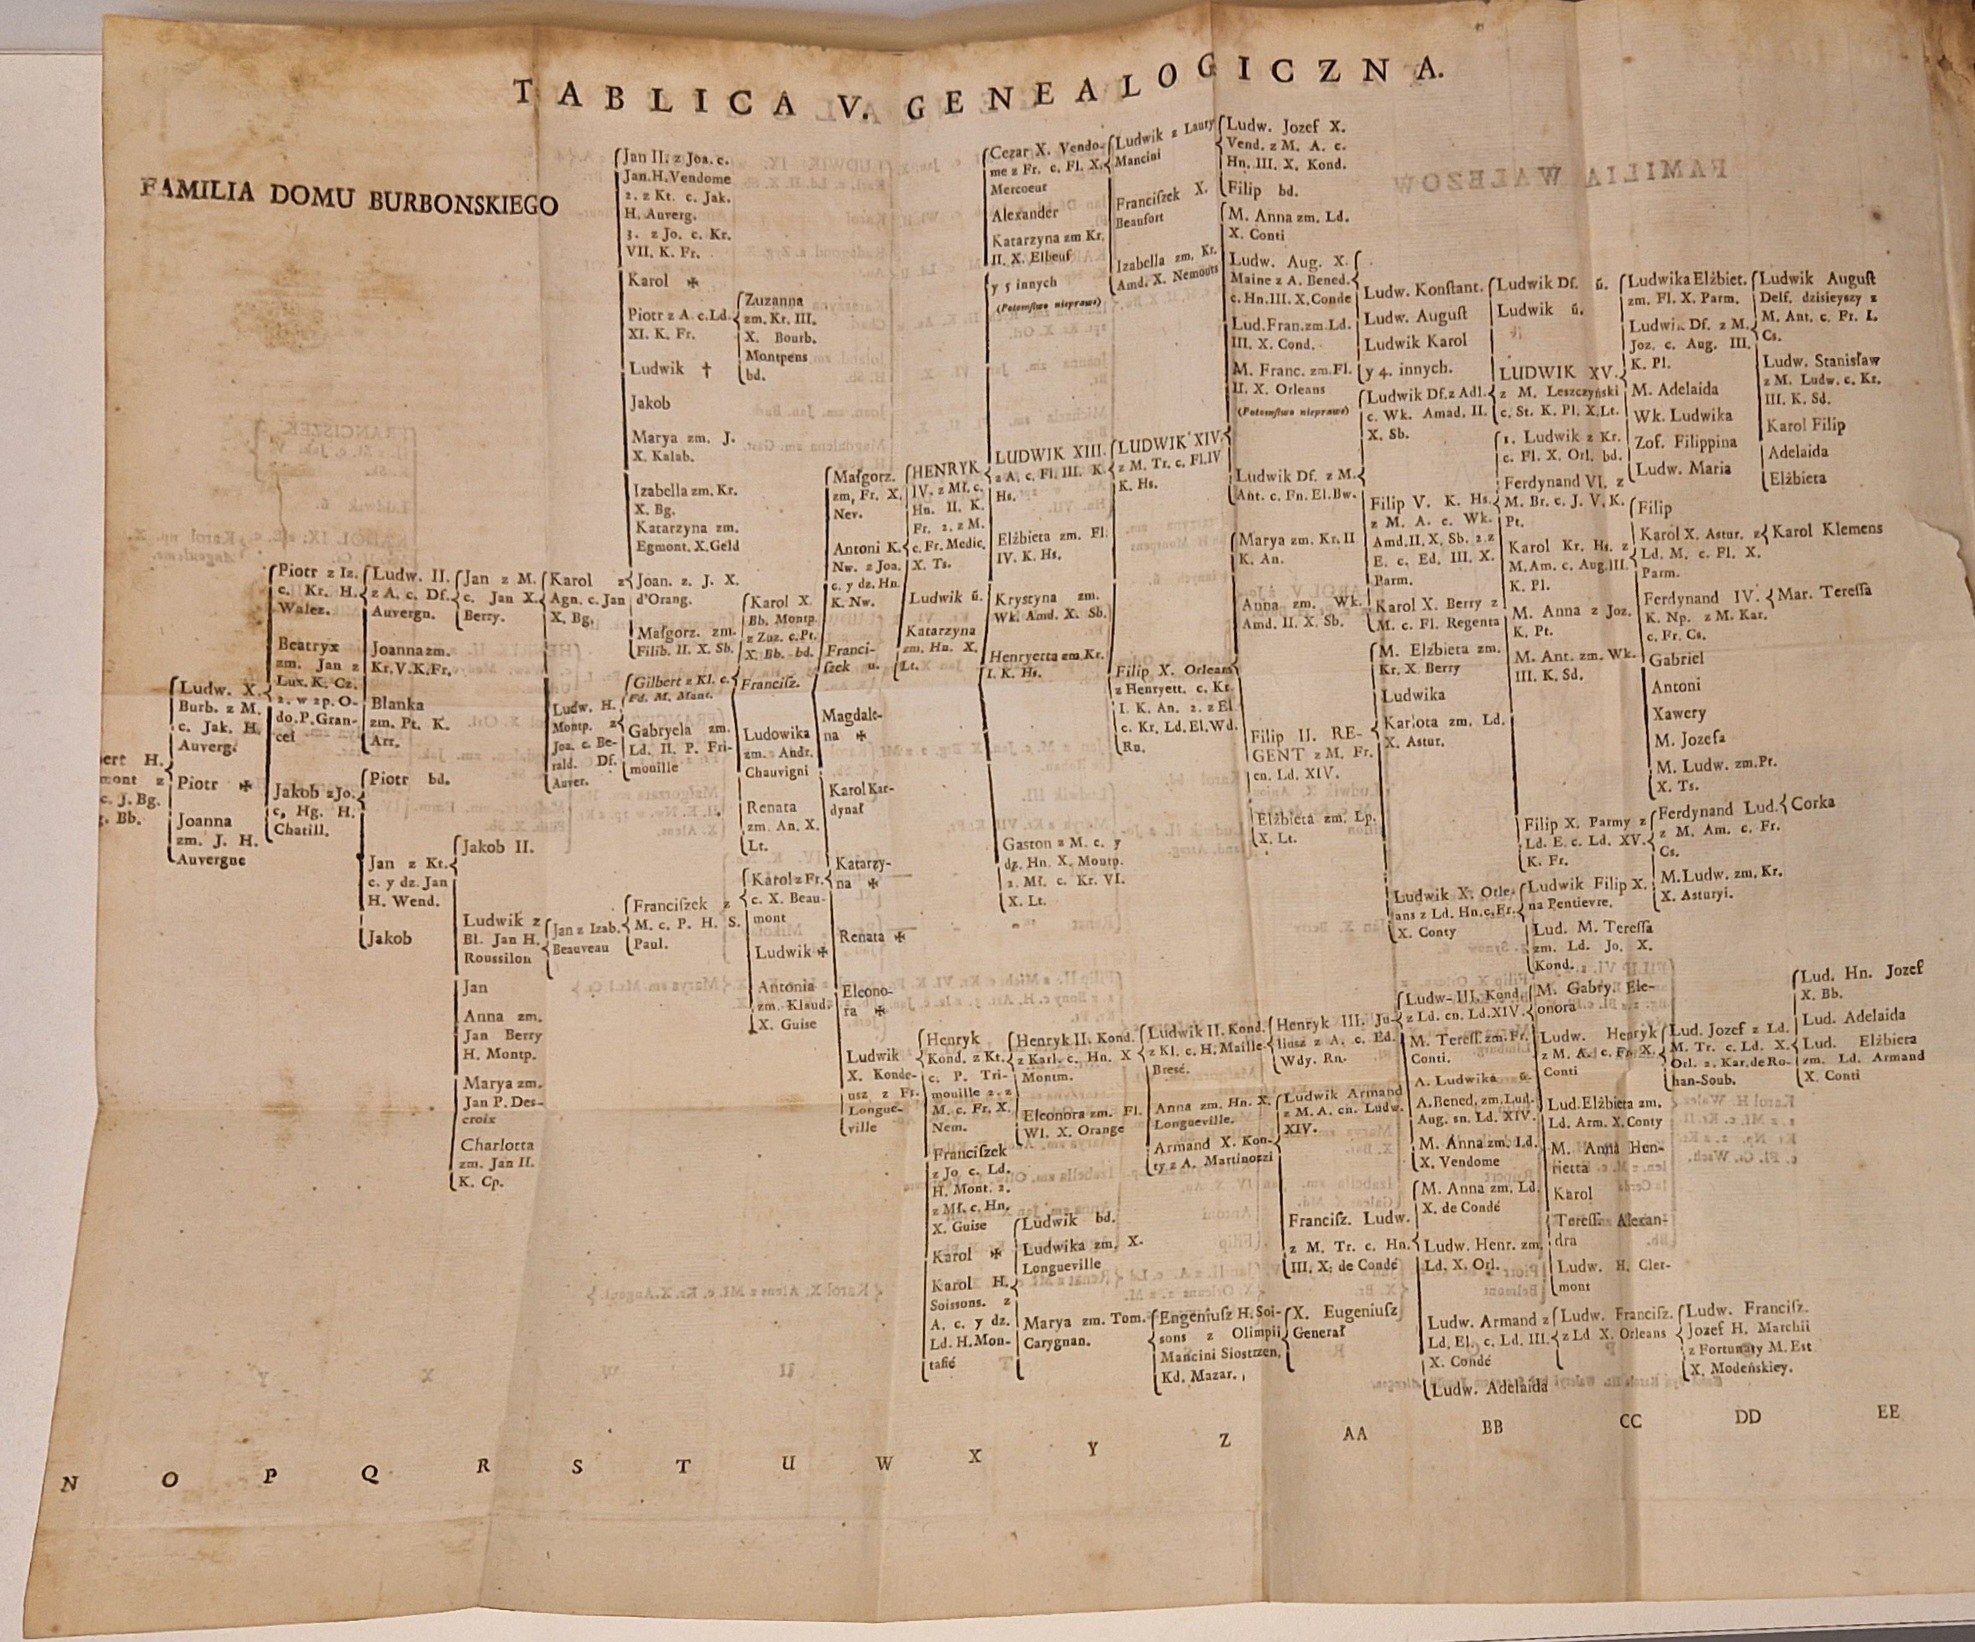 TABLICA V. GENEALOGICZNA.
FAMILIA DOMU BURBONSKIEGO
bert H.
mont z
c. J. Bg.
Bb.
Ludw. X.
Burb. z M.
c. Jak. H.
Auverg.
Piotr ✠
Joanna
zm. J. H.
Auvergne
Piotr z Iz.
c. Kr. H.
Walez.
Beatryx
zm. Jan z
Lux. K. Cz.
2. w 2p. O-
do. P. Gran-
cei
Jakob z Jo.
c, Hg. H.
Chatill.
Ludw. II.
z A. c. Df.
Auvergn.
Joanna zm.
Kr. V. K. Fr.
Blanka
zm. Pt. K.
Arr.
Piotr bd.
Jan z Kt.
c. y dz. Jan
H. Wend.
Jakob
Jan z M.
c. Jan X.
Berry.
Jakob II.
Ludwik z
Bl. Jan H.
Roussilon
Jan
Anna zm.
Jan Berry
H. Montp.
Marya zm.
Jan P. Des-
croix
Charlotta
zm. Jan II.
K. Cp.
Karol z
Agn. c. Jan
X. Bg.
Ludw. H.
Montp. z
Joa. c. Be-
rald. Df.
Auver.
Jan z Izab.
Beauveau
Jan II. z Joa. c.
Jan. H. Vendome
2. z Kt. c. Jak.
H. Auverg.
3. z Jo. c. Kr.
VII. K. Fr.
Karol ✠
Piotr z A. c. Ld.
XI. K. Fr.
Ludwik †
Jakob
Marya zm. J.
X. Kalab.
Izabella zm. Kr.
X. Bg.
Katarzyna zm.
Egmont. X. Geld
Joan. z. J. X.
d'Orang.
Małgorz. zm.
Filib. II. X. Sb.
Gilbert z Kl. c.
Fd. M. Mant.
Gabryela zm.
Ld. II. P. Fri-
mouille
Franciſzek z
M. c. P. H. S.
Paul.
Zuzanna
zm. Kr. III.
X. Bourb.
Montpens
bd.
Karol X.
Bb. Montp.
z Zuz. c. Pt.
X. Bb. bd.
Franciſz.
Ludowika
zm. Andr.
Chauvigni
Renata
zm. An. X.
Lt.
Karol z Fr.
c. X. Beau-
mont
Ludwik ✠
Antonia
zm. Klaud.
X. Guise
Małgorz.
zm. Fr. X.
Nev.
Antoni K.
Nw. z Joa.
c. y dz. Hn.
K. Nw.
Franci-
ſzek u.
Magdale-
na ✠
Karol Kar-
dynał
Katarzy-
na ✠
Renata ✠
Eleono-
ra ✠
Ludwik
X. Konde-
usz z Fr.
Longue-
ville
HENRYK
IV. z Mł. c.
Hn. II. K.
Fr. 2. z M.
c. Fr. Medic.
X. Ts.
Ludwik ú.
Katarzyna
zm. Hn. X.
Lt.
Henryk
Kond. z Kt.
c. P. Tri-
mouille 2. z
M. c. Fr. X.
Nem.
Franciſzek
z Jo c. Ld.
H. Mont. 2.
z Mł. c. Hn.
X. Guise
Karol ✠
Karol H.
Soissons. z
A. c. y dz.
Ld. H. Mon-
tafié
Cezar X. Vendo-
me z Fr. c. Fl. X.
Mercoeur
Alexander
Katarzyna zm Kr.
II. X. Elbeuf
y 5 innych
(Potomſtwo nieprawe)
LUDWIK XIII.
z A. c. Fl. III. K.
Hs.
Elżbieta zm. Fl.
IV. K. Hs.
Krystyna zm.
Wk. Amd. X. Sb.
Henryetta zm. Kr.
I. K. Hs.
Gaston z M. c. y
dz. Hn. X. Montp.
2. Mł. c. Kr. VI.
X. Lt.
Henryk II. Kond.
z Karl. c. Hn. X
Montm.
Eleonora zm. Fl.
Wl. X. Orange
Ludwik bd.
Ludwika zm, X.
Longueville
Marya zm. Tom.
Carygnan.
Ludwik z Laury
Mancini
Franciſzek X.
Beaufort
Izabella zm. Kr.
Amd. X. Nemours
LUDWIK XIV.
z M. Tr. c. Fl. IV
K. Hs.
Filip X. Orleans
z Henryett. c. Kr.
I. K. An. 2. z El.
c. Kr. Ld. El. Wd.
Rn.
Ludwik II. Kond.
z Kl. c. H. Maille-
Bresé.
Anna zm. Hn. X.
Longueville.
Armand X. Kon-
ty z A. Martinozzi
Eugeniuſz H. Soi-
sons z Olimpii
Mancini Siostrzen.
Kd. Mazar.
Ludw. Jozef X.
Vend. z M. A. c.
Hn. III. X. Kond.
Filip bd.
M. Anna zm. Ld.
X. Conti
Ludw. Aug. X.
Maine z A. Bened.
c. Hn. III. X. Conde
Lud. Fran. zm. Ld.
III. X. Cond.
M. Franc. zm. Fl.
II. X. Orleans
(Potomſtwo nieprawe)
Ludwik Df. z M.
Ant. c. Fn. El. Bw.
Marya zm. Kr. II
K. An.
Anna zm. Wk.
Amd. II. X. Sb.
Filip II. RE-
GENT z M. Fr.
cn. Ld. XIV.
Elżbieta zm. Lp.
X. Lt.
Henryk III. Ju-
liusz z A. c. Ed.
Wdy. Rn.
Ludwik Armand
z M. A. cn. Ludw.
XIV.
Franciſz. Ludw.
z M. Tr. c. Hn.
III. X. de Condé
X. Eugeniuſz
Generał
Ludw. Konſtant.
Ludw. Auguſt
Ludwik Karol
y 4. innych.
Ludwik Df. z Adl.
c. Wk. Amad. II.
X. Sb.
Filip V. K. Hs.
z M. A. c. Wk.
Amd. II. X. Sb. 2. z
E. c. Ed. III. X.
Parm.
Karol X. Berry z
M. c. Fl. Regenta
M. Elżbieta zm.
Kr. X. Berry
Ludwika
Karlota zm. Ld.
X. Astur.
Ludwik X. Orle-
ans z Ld. Hn. c. Fr.
X. Conty
Ludw. III. Kond.
z Ld. cn. Ld. XIV.
M. Tereſſ. zm. Fr.
Conti.
A. Ludwika ú.
A. Bened. zm. Lud.
Aug. sn. Ld. XIV.
M. Anna zm. Ld.
X. Vendome
M. Anna zm. Ld.
X. de Condé
Ludw. Henr. zm.
Ld. X. Orl.
Ludw. Armand z
Ld. El. c. Ld. III.
X. Condé
Ludw. Adelaida
Ludwik Df. ú.
Ludwik ú.
LUDWIK XV.
z M. Leszczyński
c. St. K. Pl. X. Lt.
1. Ludwik z Kr.
c. Fl. X. Orl. bd.
Ferdynand VI. z
M. Br. c. J. V. K.
Pt.
Karol Kr. Hs. z
M. Am. c. Aug. III.
K. Pl.
M. Anna z Joz.
K. Pt.
M. Ant. zm. Wk.
III. K. Sd.
Filip X. Parmy z
Ld. E. c. Ld. XV.
K. Fr.
Ludwik Filip X.
na Pentievre.
Lud. M. Tereſſa
zm. Ld. Jo. X.
Kond.
M. Gabry. Ele-
onora
Ludw. Henryk
z M. A. c. Fr. X.
Conti
Lud. Elżbieta zm.
Ld. Arm. X. Conty
M. Anna Hen-
rietta
Karol
Tereſſ. Alexan-
dra
Ludw. H. Cler-
mont
Ludw. Franciſz.
z Ld X. Orleans
Ludwika Elżbiet.
zm. Fl. X. Parm.
Ludwik Df. z M.
Joz. c. Aug. III.
K. Pl.
M. Adelaida
Wk. Ludwika
Zof. Filippina
Ludw. Maria
Filip
Karol X. Astur. z
Ld. M. c. Fl. X.
Parm.
Ferdynand IV.
K. Np. z M. Kar.
c. Fr. Cs.
Gabriel
Antoni
Xawery
M. Jozefa
M. Ludw. zm. Pt.
X. Ts.
Ferdynand Lud.
z M. Am. c. Fr.
Cs.
M. Ludw. zm. Kr.
X. Asturyi.
Lud. Jozef z Ld.
M. Tr. c. Ld. X.
Orl. 2. Kar. de Ro-
han-Soub.
Ludw. Franciſz.
Jozef H. Marchii
z Fortunaty M. Est
X. Modeńskiey.
Ludwik Auguſt
Delf. dzisieyszy z
M. Ant. c. Fr. I.
Cs.
Ludw. Stanisław
z M. Ludw. c. Kr.
III. K. Sd.
Karol Filip
Adelaida
Elżbieta
Karol Klemens
Mar. Tereſſa
Corka
Lud. Hn. Jozef
X. Bb.
Lud. Adelaida
Lud. Elżbieta
zm. Ld. Armand
X. Conti
N O P Q R S T U W X Y Z AA BB CC DD EE